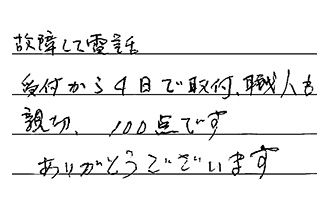 故障して電話
受付から4日で取付、職人も
親切、100点です
ありがとうございます